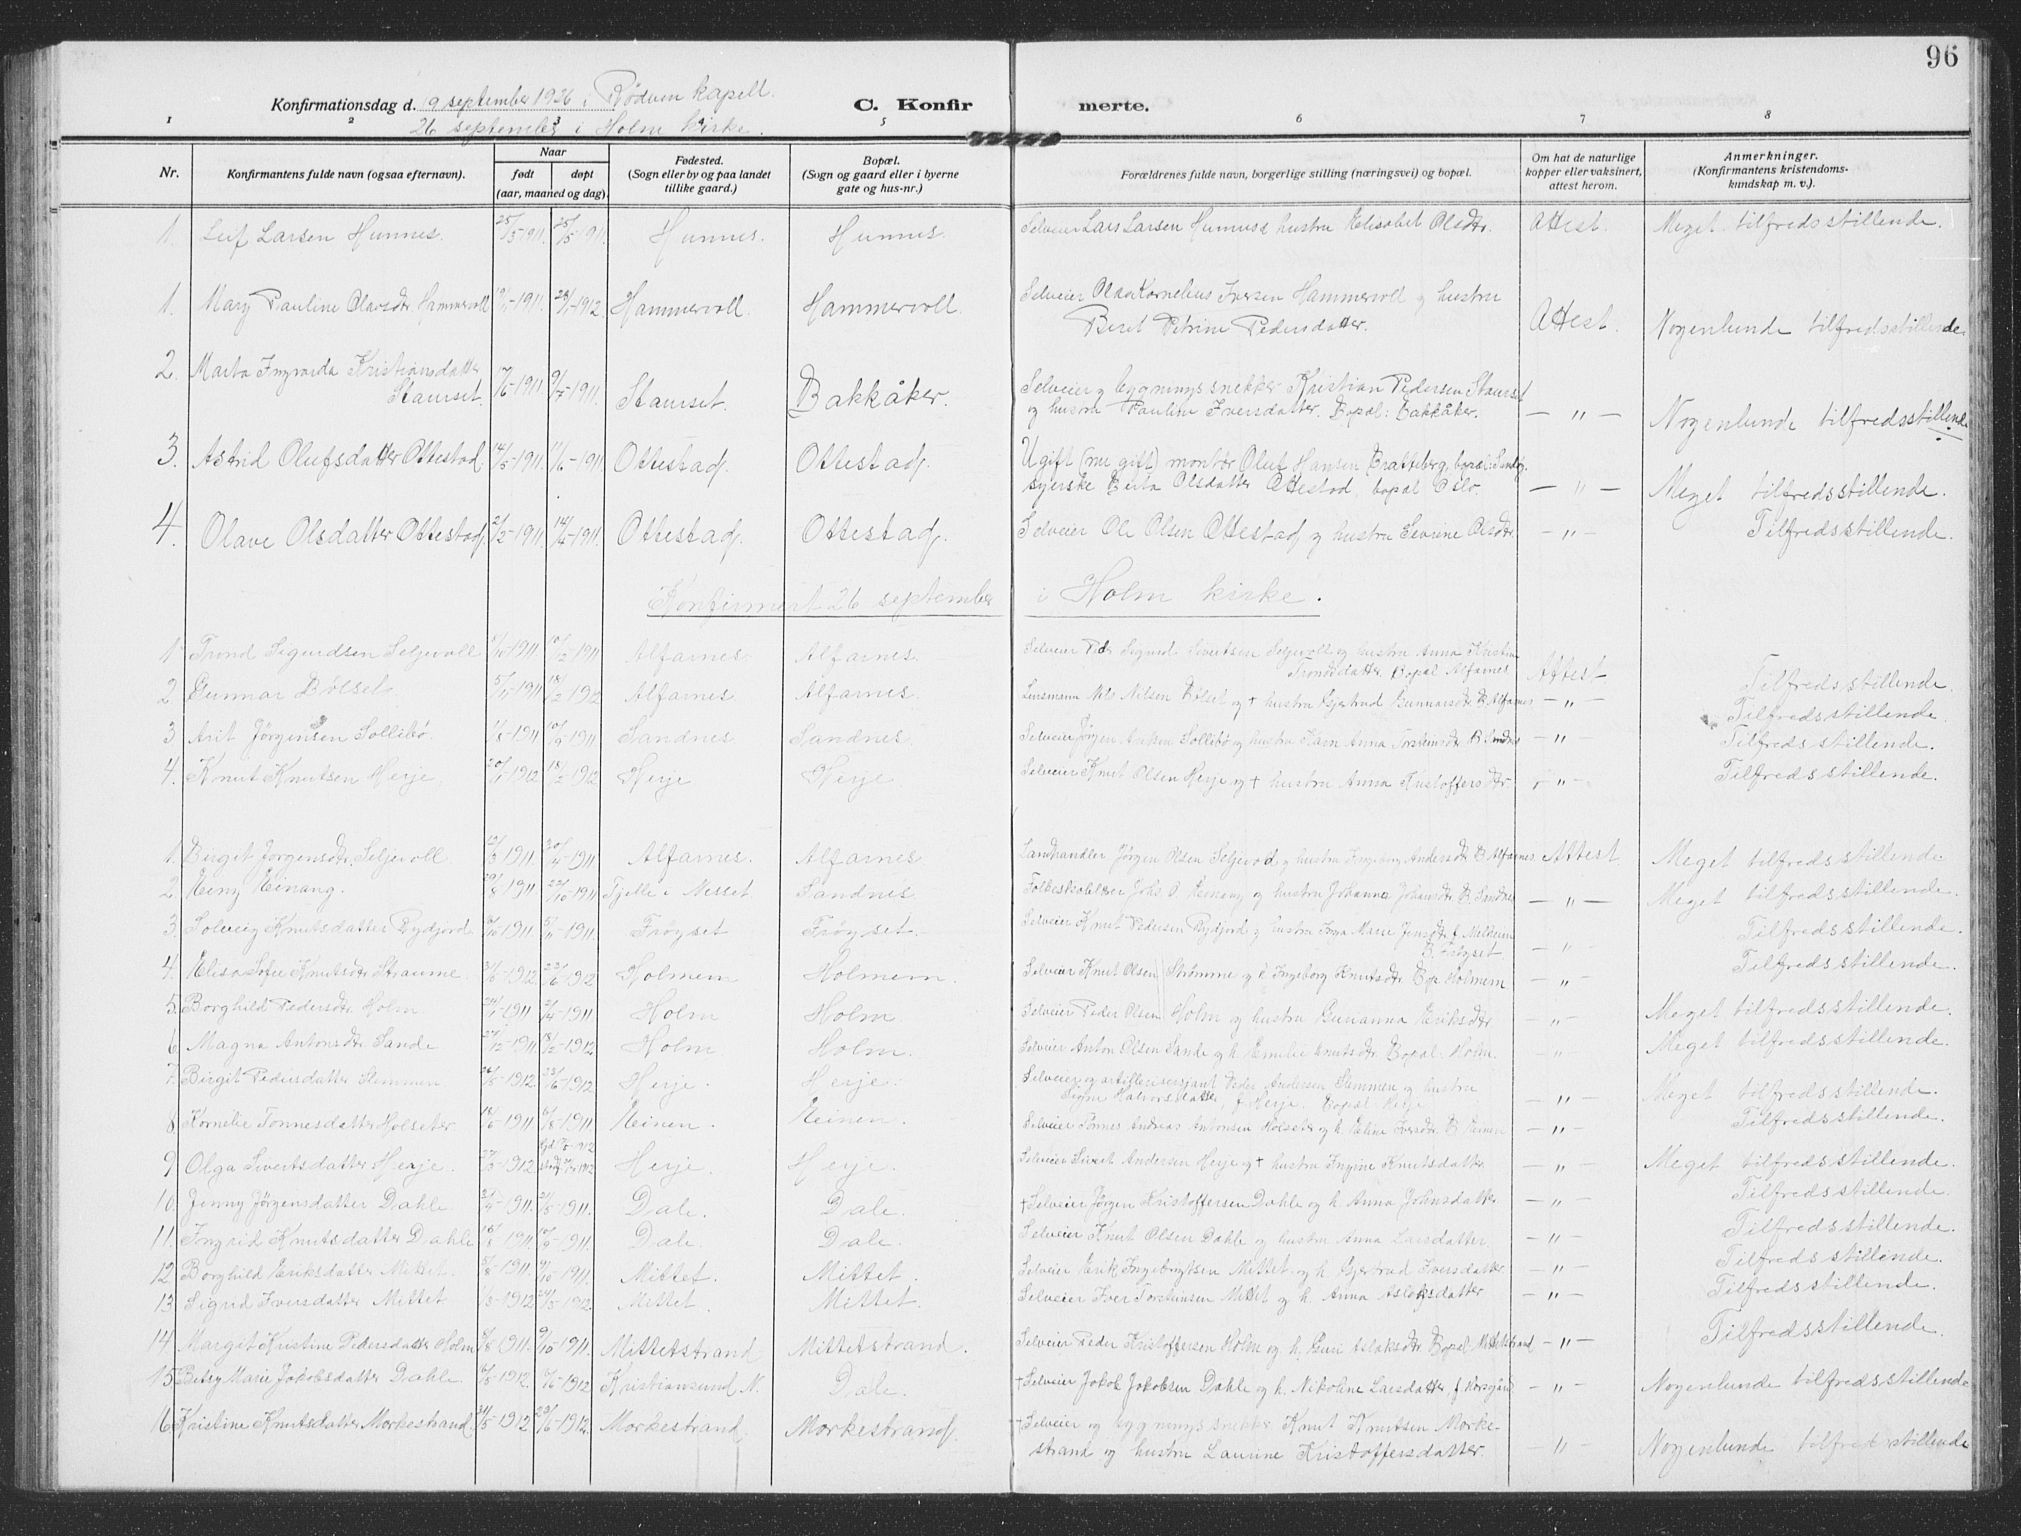 96
Konfirmationsdag d. 19 september 1926 i Rødven kapell.
26 september i Holm kirke.
C. Konfirmerte.
1 2 3 4 5 6 7 8
Nr. Konfirmantens fulde navn (ogsaa efternavn). Naar født døpt (aar, maaned og dag). Fødested. (Sogn eller by og paa landet tillike gaard.) Bopæl. (Sogn og gaard eller i byerne gate og hus-nr.) Forældrenes fulde navn, borgerlige stilling (næringsvei) og bopæl. Om hat de naturlige kopper eller vaksinert, attest herom. Anmerkninger. (Konfirmantens kristendomskundskap m. v.).
1. Leif Larsen Hunnes. 25/5-1911. 25/5-1911. Hunnes. Hunnes. Selveier Lars Larsen Hunnes & hustru Elisabet Olsdtr. Attest. Meget tilfredsstillende.
1. Mary Pauline Olavsdtr Hammervoll -1911. -1912. Hammervoll Hammervoll. Selveier Olav Kornelius Iversen Hammervoll og hustru
Beret Petrine Pedersdatter. Attest. Nogenlunde tilfredsstillende
2. Marta Ingvarda Kristiansdatter
Staurset. 17/6-1911. 9/7-1911. Staurset. Bakkåker. Selveier og bygningssnekker Kristian Pedersen Staurset
og hustru Pauline Iversdatter. Bopæl: Bakkåker. — " — Nogenlunde tilfredsstillende
3. Astrid Olufsdatter Ottestad 14/5-1911. 11/6-1911. Ottestad. Ottestad. Ugift (nu gift) montør Oluf Hansen Bratteberg, bopæl:
syerske Berta Olsdatter Ottestad, bopæl Oslo. — " — Meget tilfredsstillende.
4. Olave Olsdatter Ottestad 21/2-1911. 14/4-1911. Ottestad. Ottestad. Selveier Ole Olsen Ottestad og hustru Sevrine Olsdtr. — " — Tilfredsstillende.
Konfirmert 26 september i Holm kirke.
1 Trond Sigurdsen Seljevoll /10-1911 10/12-1911 Alfarnes. Alfarnes. Selveier Peder Sigurd Sivertsen Seljevoll og hustru Anna Kristin
Trondsdatter Bopæl Alfarnes. Attest Tilfredsstillende.
2 Gunnar Bølset 5/11-1911 18/2-1912 Alfarnes Alfarnes. Lensmann Nils Nilsen Bølset og + hustru Gjertrud Gunnarsdtr B. Alfarnes — " — Tilfredsstillende.
3 Arit Jörgensen Sollibö. /8-1911 10/9-1911 Sandnes Sandnes. Selveier Jörgen Ariksen Sollibö og hustru Karn Anna Torsteinsdtr B. Sandnes — " — Tilfredsstillende.
4. Knut Knutsen Herje. 20/1-1912 18/2-1912 Herje Herje Selveier Knut Olsen Herje og + hustru Anna Kristoffersdtr. — " — Tilfredsstillende.
1. Birget Jörgensdtr. Seljevoll 12/3 1911. 20/4-1911 Alfarnes. Alfarnes. Landhandler Jörgen Olsen Seljevold og hustru Ingeborg Andersdtr B. Alfarnes. Attest Meget tilfredsstillende
2 Einy Einang. 29/8 1911 22/10-1911 Tjelle i Nesset Sandnes Folkeskolelærer Johs O. Einang og hustru Johanna Johansdtr B. Sandnes — " — Meget tilfredsstillende.
3 Solveig Knutsdatter Rydjord /10-1911 5/11-1911 Fröyset Fröyset. Selveier Knut Pedersen Rydjord og hustru Inga Marie Jensdtr f. Melkeien
B. Fröyset — " — Tilfredsstillende.
4. Elisa Sofie Knutsdtr Straume 31/5-1912 23/6-1912 Holmem Holmem. Selveier Knut Olsen Strömme og h. Ingeborg Knutsdtr Bop. Holmem — " — Tilfredsstillende.
5. Borghild Pedersdtr Holm 24/1-1911 2/4-1911 Holm Holm. Selveier Peder Olsen Holm og hustru Gurianna Eriksdtr — " — Meget tilfredsstillende.
6. Magna Antonsdtr Sande 27/12-1911 18/2-1912. Holm Holm. Selveier Anton Olsen Sande og h. Emilie Knutsdtr. Bopæl: Holm. — " — Meget tilfredsstillende.
7. Birgit Pedersdatter Slemmen 26/5-1912. 23/6-1912. Herje. Herje. Selveier og artillerisersjant Peder Andersen Slemmen og hustru
Signe Halvorsdatter, f. Herje. Bopæl Herje — " — Meget tilfredsstillende.
8. Kornelie Tönnesdatter Holseter 18/6-1911 6/8-1911. Reinen. Reinen. Selveier Tönnes Andreas Antonsen Holseter og h. Eline Iversdtr. B. Reinen — " — Tilfredsstillende.
9. Olga Sivertsdatter Herje. -1912. Herje. Herje. Selveier Sivert Andersen Herje og + hustru Ingrine Knutsdatter — " — Meget tilfredsstillende.
10. Jenny Jörgensdatter Dahle 2/4-1911. 21/5-1911. Dale. Dale. + Selveier Jörgen Kristoffersen Dahle og h. Anna Johnsdatter — " — Tilfredsstillende.
11. Ingrid Knutsdatter Dahle 16/8-1911. 10/9-1911. Dale. Dale. Selveier Knut Olsen Dahle og hustru Anna Larsdatter. — " — Tilfredsstillende.
12. Borghild Eriksdatter Mittet. 5/8-1911. 9/10-1911. Mittet. Mittet. Selveier Erik Ingebrigtsen Mittet og h. Gjertrud Iversdatter — " — Tilfredsstillende.
13. Sigrid Iversdatter Mittet /3-1912 24/5-1912. Mittet. Mittet. Selveier Iver Torsteinsen Mittet og h. Anna Aslaksdatter — " — Tilfredsstillende.
14. Margit Kristine Pedersdatter Holm 8/8-1911. 9/10-1911. Mittetstrand Mittetstrand. Selveier Peder Kristoffersen Holm og h. Guri Aslaksdtr Bopæl Mittetstrand — " — Tilfredsstillende.
15. Betsy Marie Jakobsdatter Dahle. /5-1912. /6-1912 Kristiansund N. Dale. + Selveier Jakob Jakobsen Dahle og h. Nikoline Larsdatter, f. — " — Nogenlunde tilfredsstillende
16. Kristine Knutsdatter Morkestrand. 31/5-1912. 23/6-1912. Morkestrand. Morkestrand. + Selveier og bygningssnekker Knut Knutsen Morke-
strand og hustru Laurine Kristoffersdatter. " — Nogenlunde tilfredsstillende